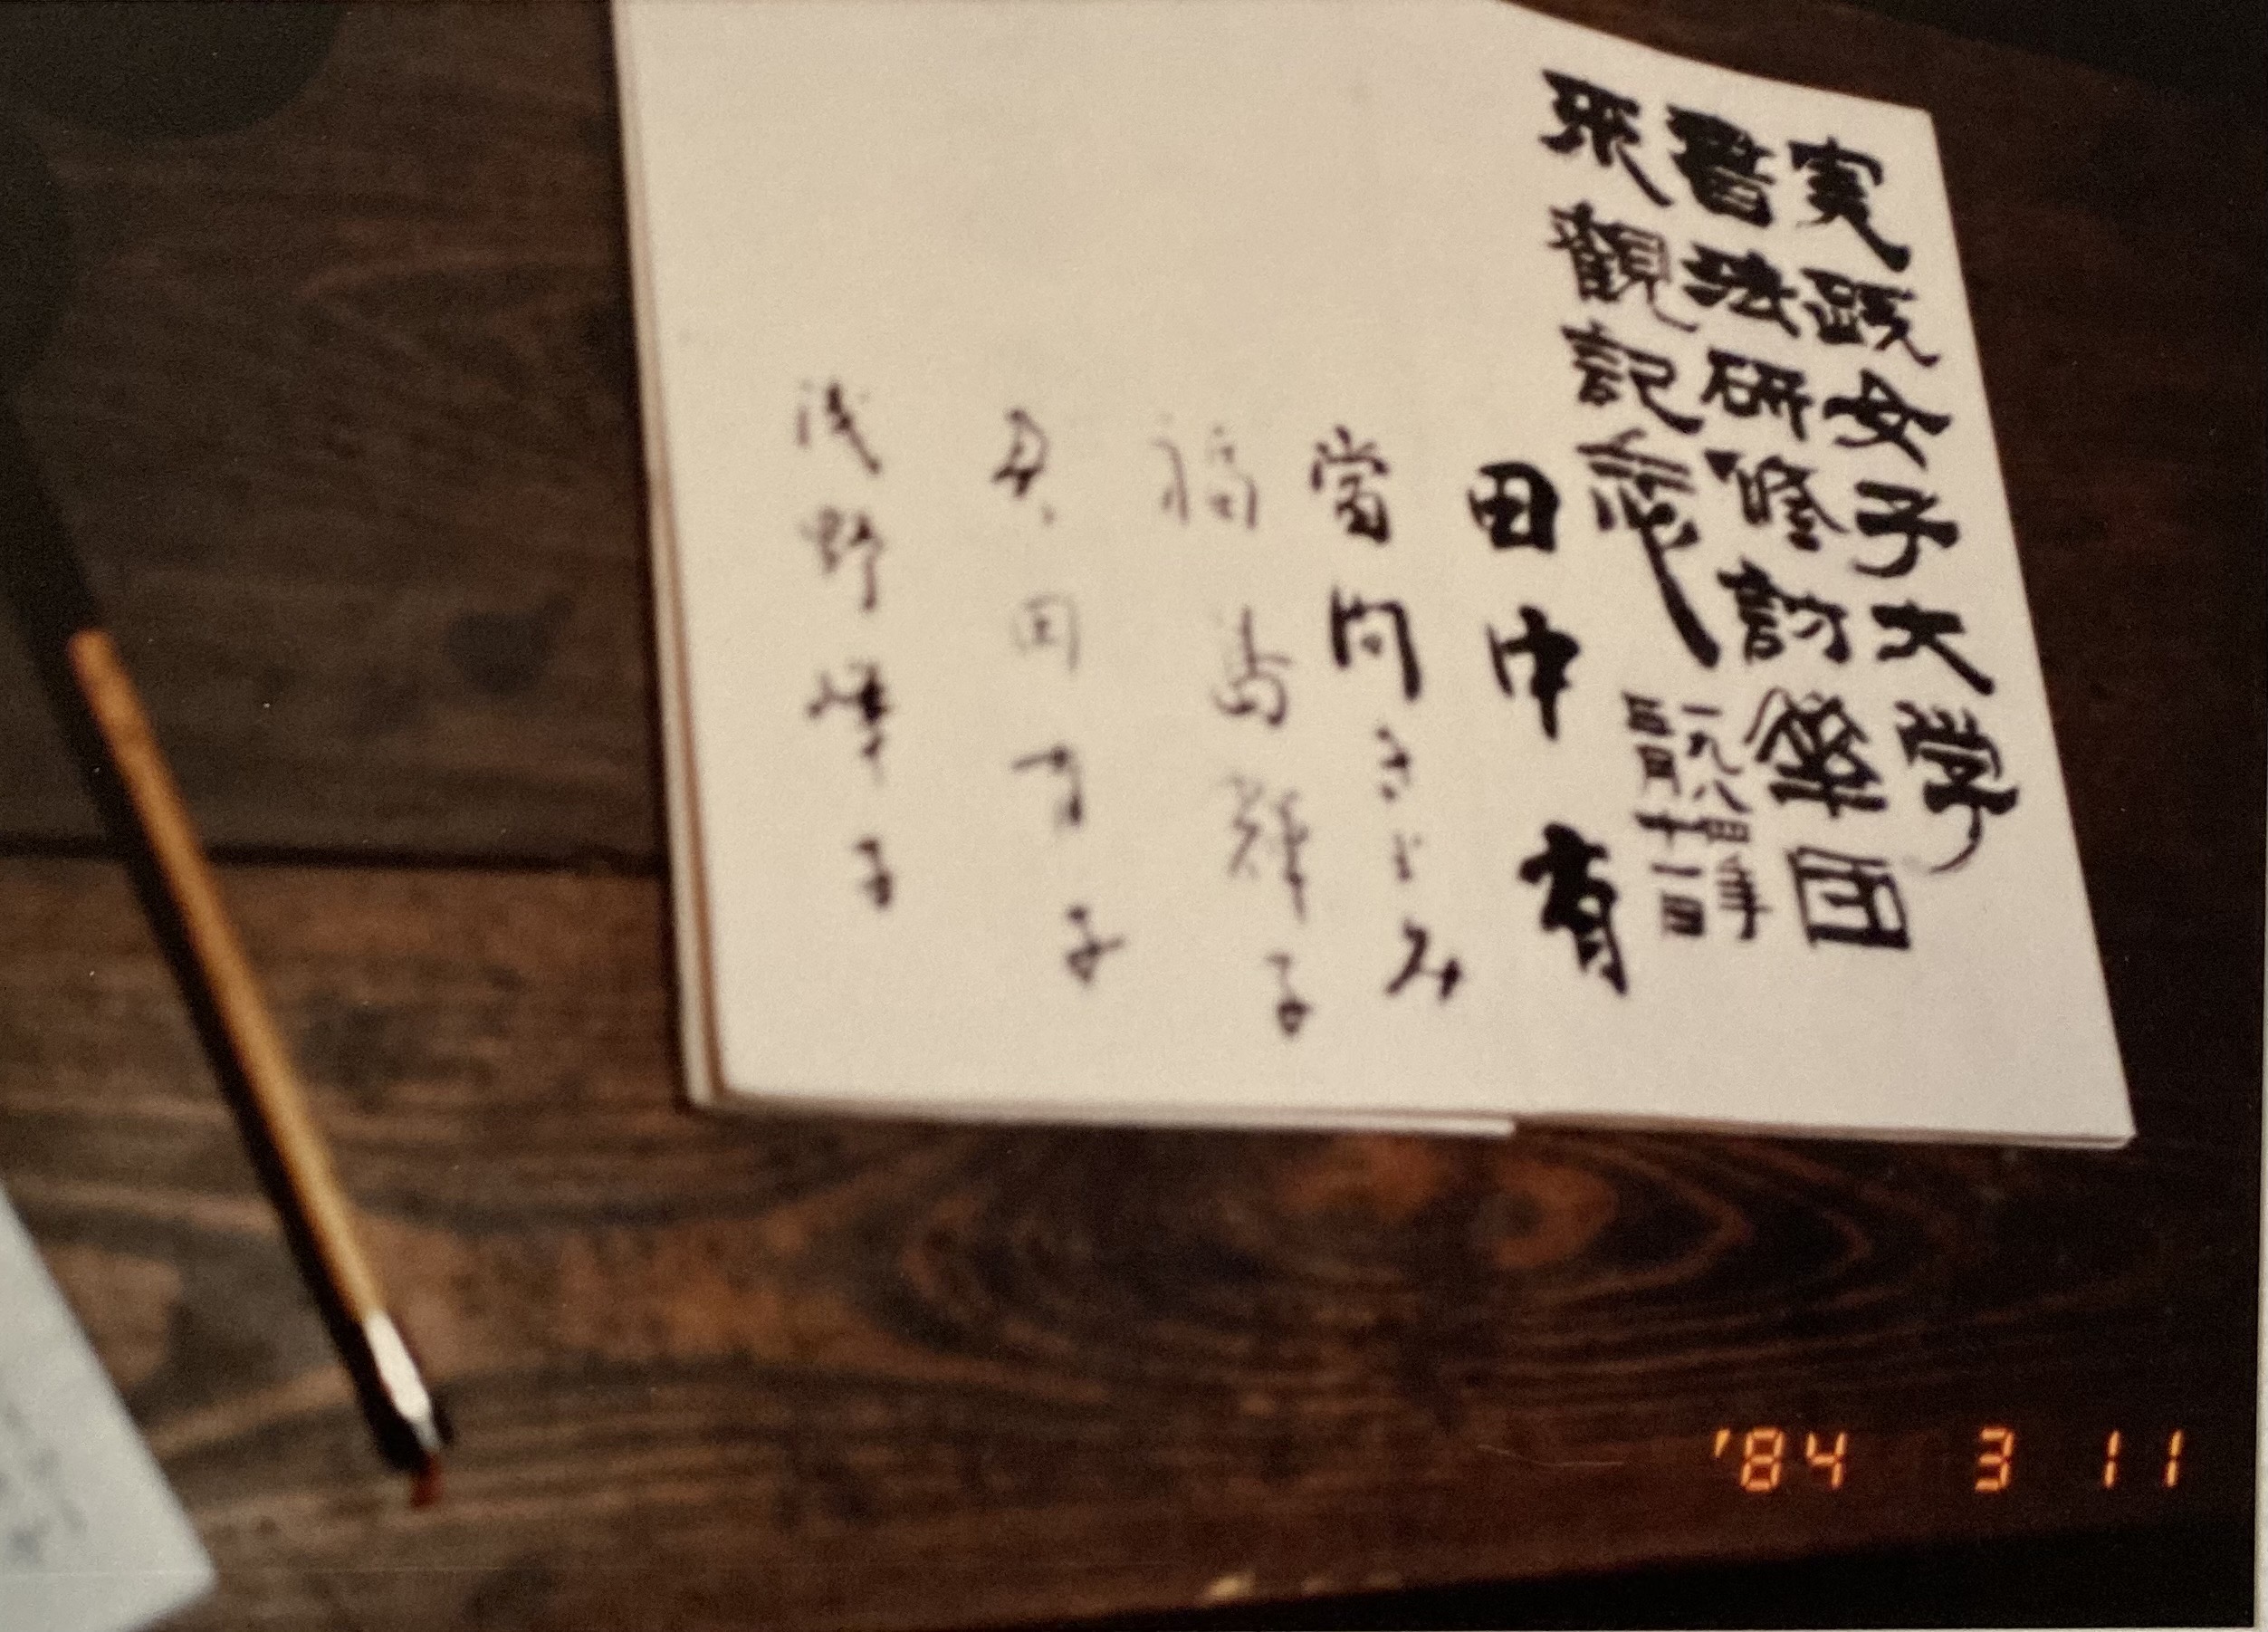 実践女子大学
書法研修訪華団
来観記念
一九八四年
三月十一日
田中有
當間きよみ
福島輝子
田有子
浅野 子
'84 3 11